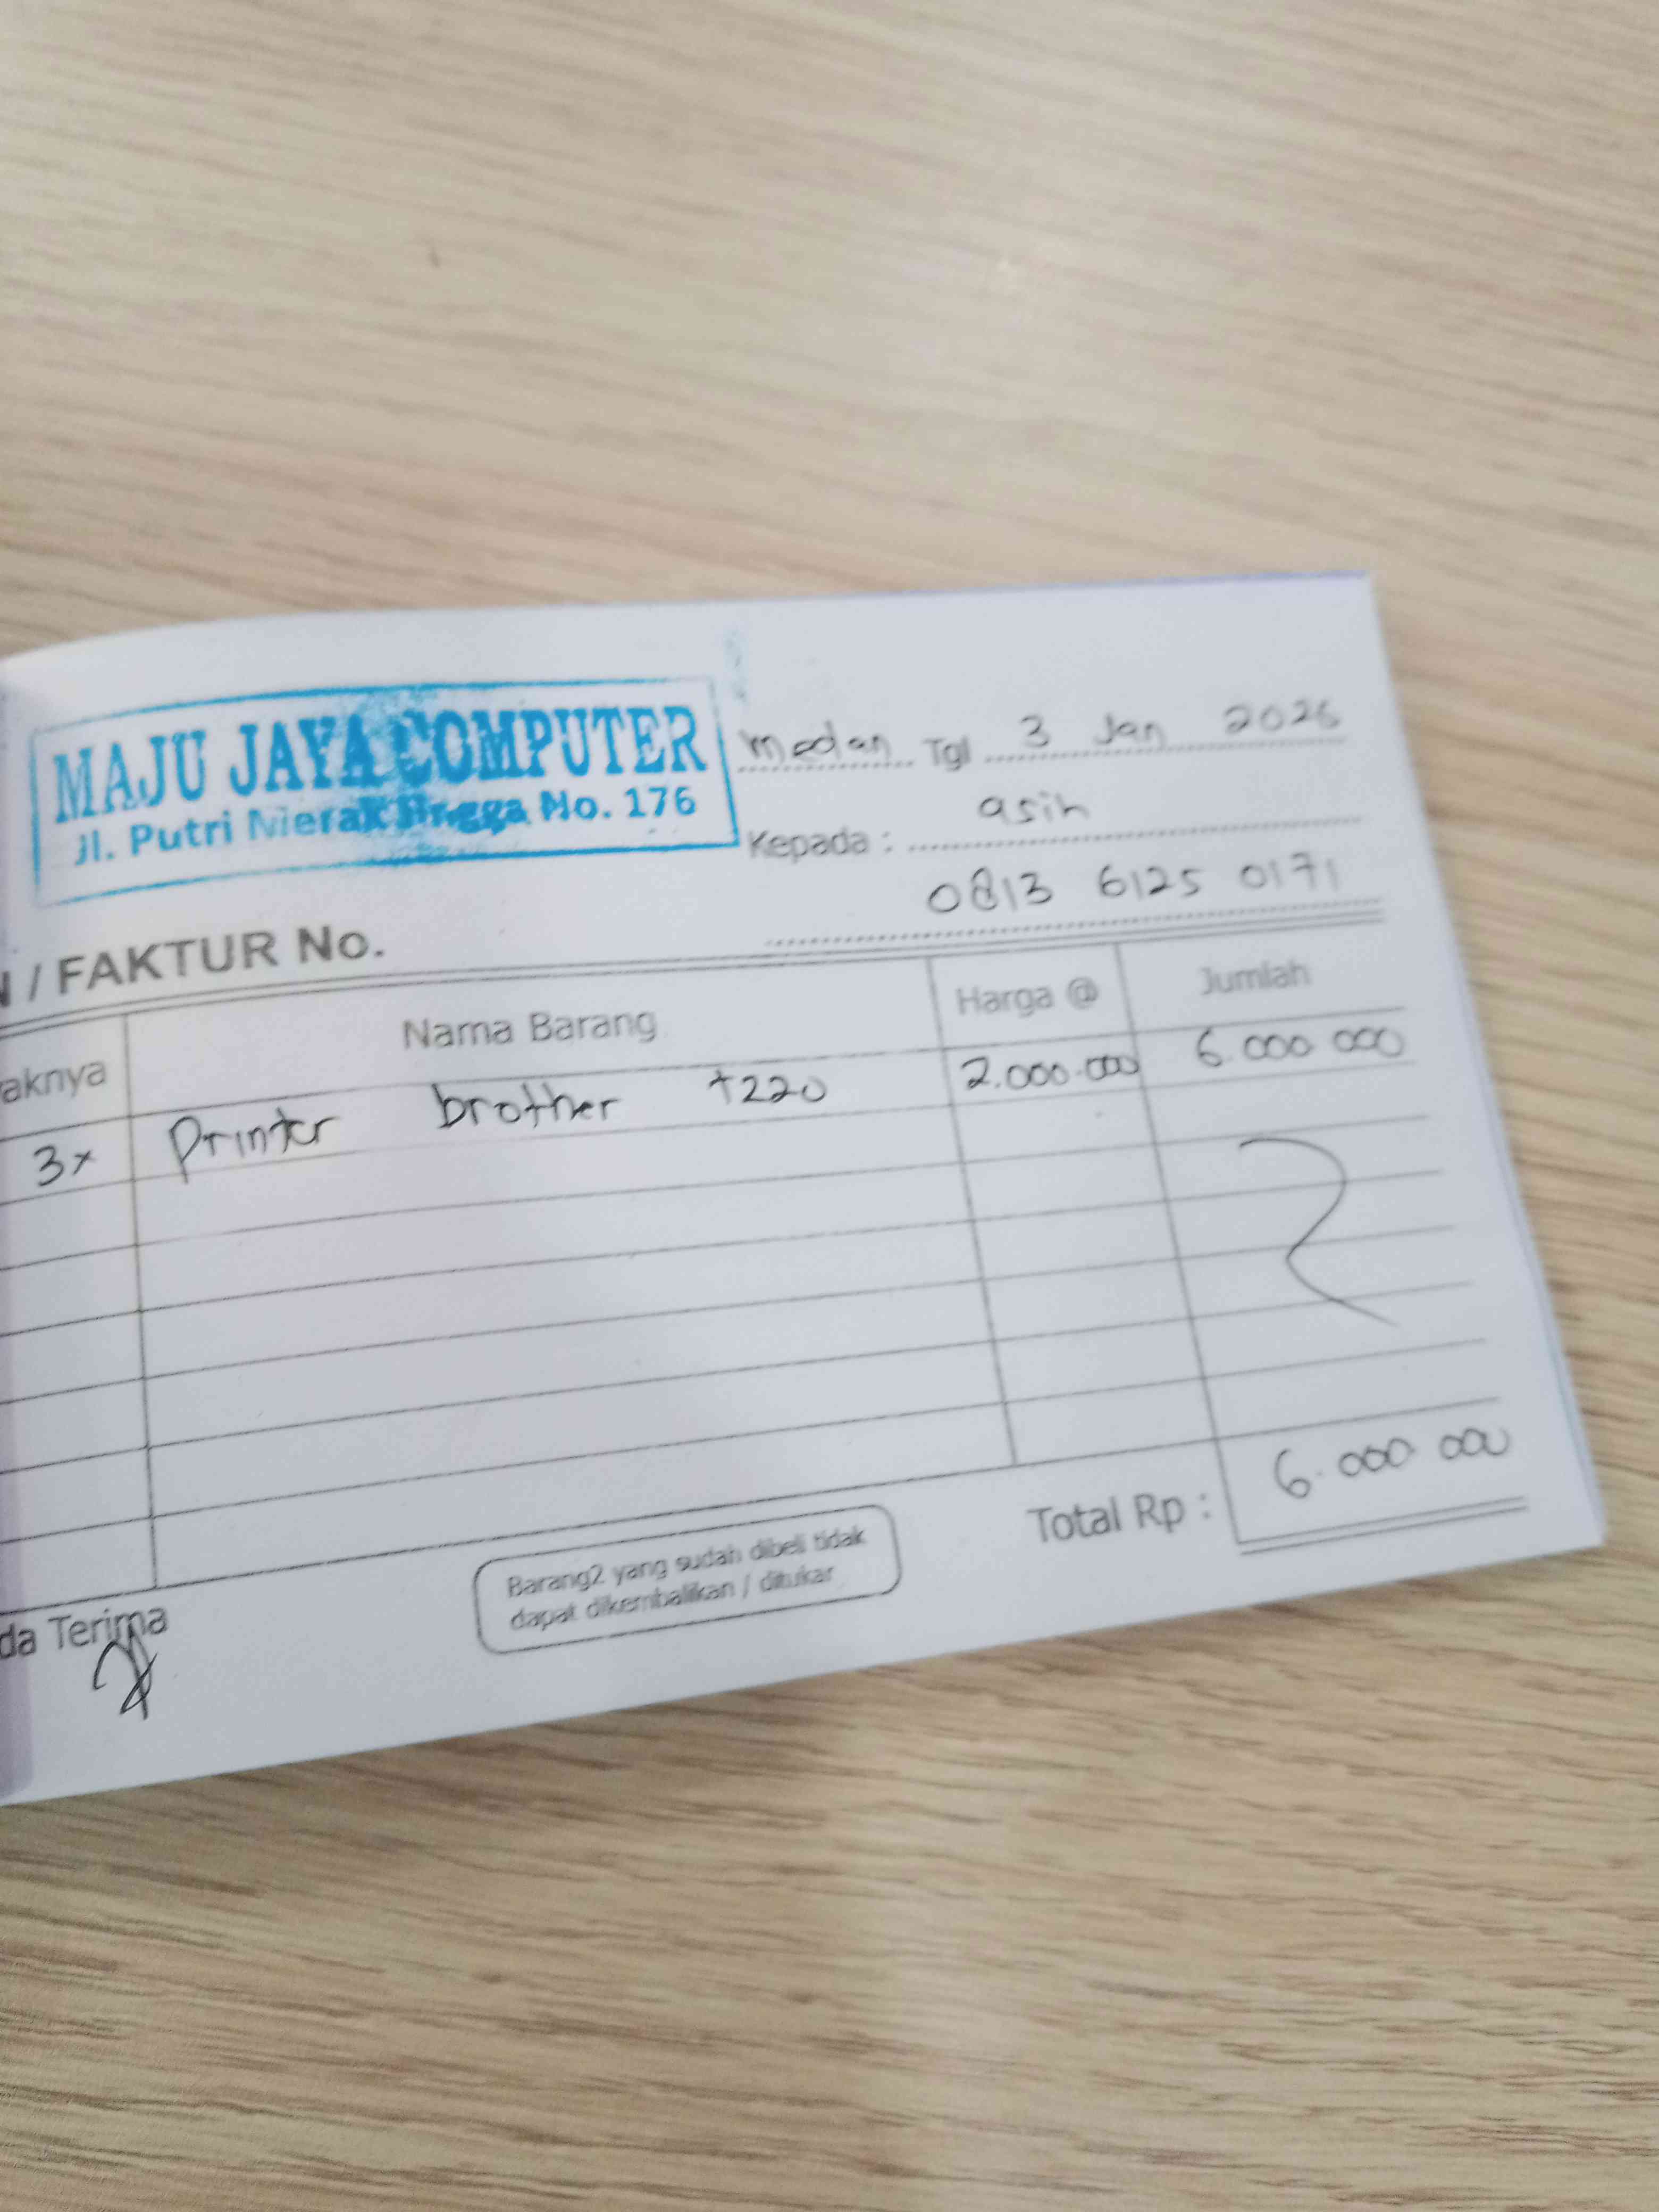 MAJU JAYA COMPUTER
Jl. Putri Merak Jingga No. 176
medan Tgl 3 Jan 2026
Kepada : asih
0813 6125 0171
/ FAKTUR No.
aknya Nama Barang Harga @ Jumlah
3x Printer brother t220 2.000.000 6.000 000
Total Rp : 6.000 000
Barang2 yang sudah dibeli tidak
dapat dikembalikan / ditukar
da Terima